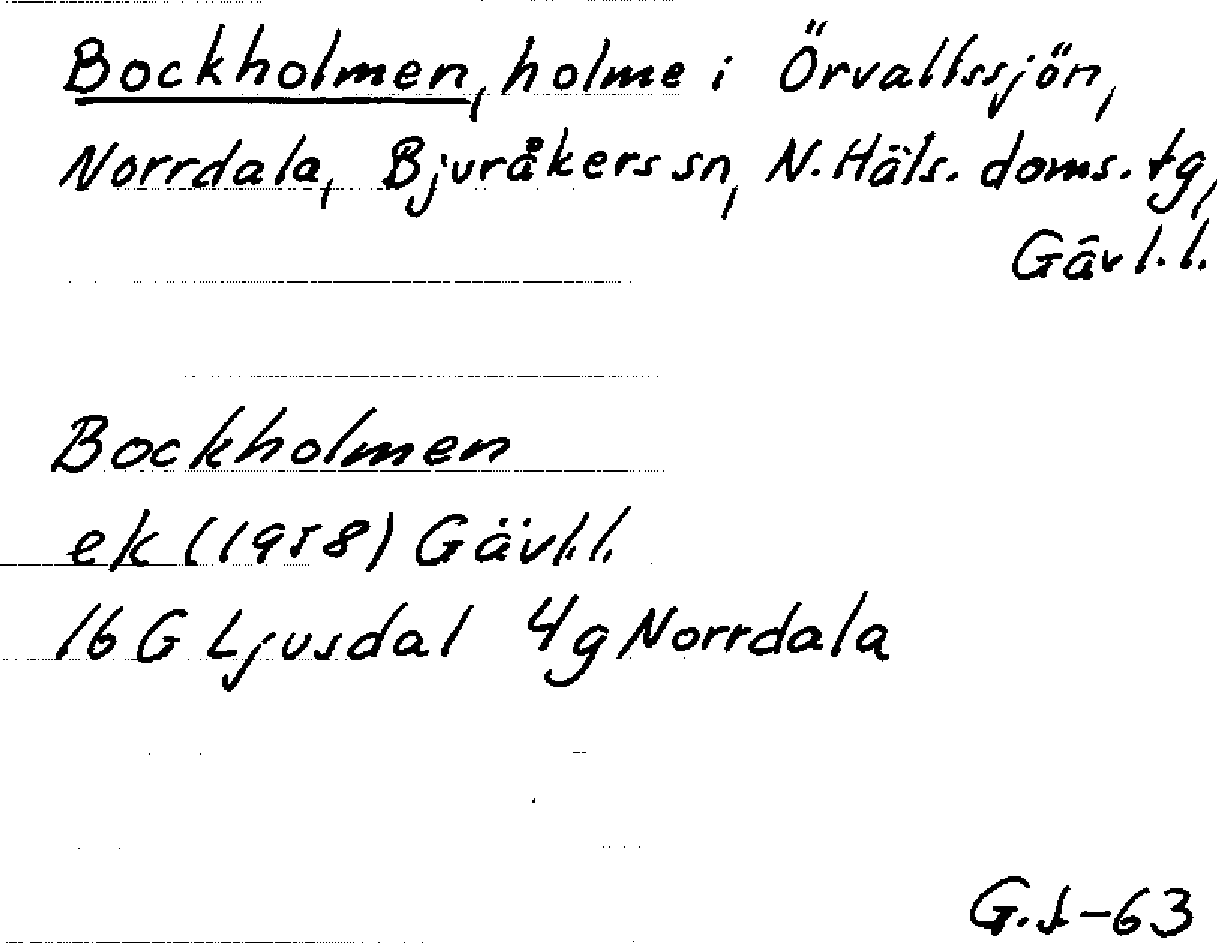 Bockholmen, holme i Örvallssjön,
Norrdala, Bjuråkers sn, N. Häls. doms. tg,
Gävl. l.
Bockholmen
ek (1958) Gävl. l.
16 G Ljusdal 4g Norrdala
G.S-63